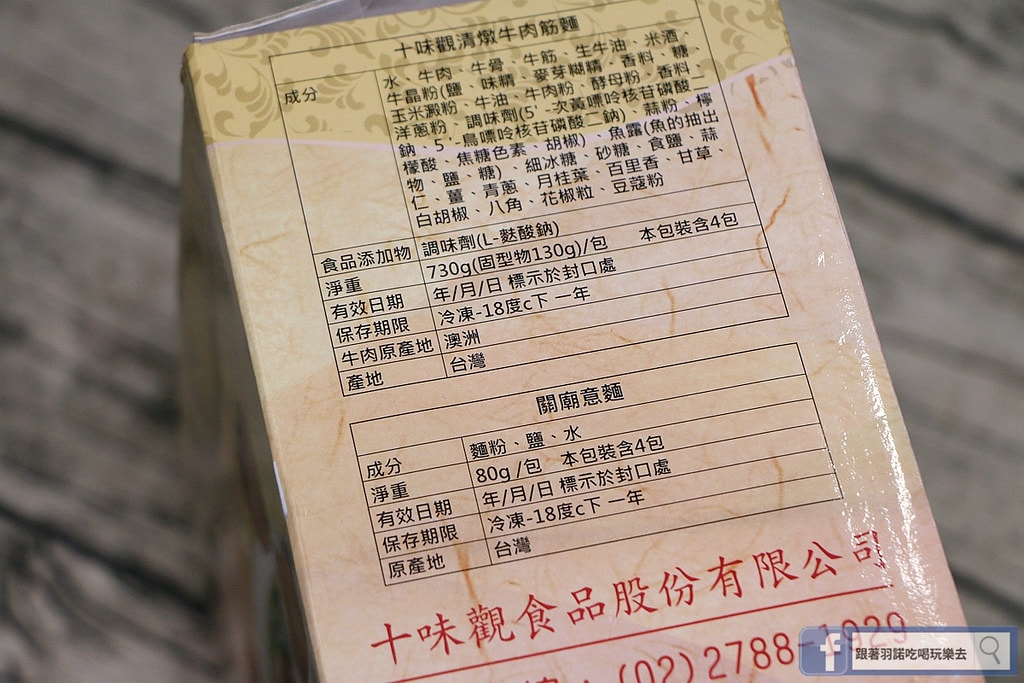 十味觀清燉牛肉筋麵
成分
水、牛肉、牛骨、牛筋、生牛油、米酒、
牛晶粉(鹽、味精、麥芽糊精、香料、糖、
玉米澱粉、牛油、牛肉粉、酵母粉、香料、
洋蔥粉、調味劑(5'-次黃嘌呤核苷磷酸二
鈉、5'-鳥嘌呤核苷磷酸二鈉)、蒜粉、檸
檬酸、焦糖色素、胡椒)、魚露(魚的抽出
物、鹽、糖)、細冰糖、砂糖、食鹽、蒜
仁、薑、青蔥、月桂葉、百里香、甘草、
白胡椒、八角、花椒粒、豆蔻粉
食品添加物 調味劑(L-麩酸鈉)
淨重 730g(固型物130g)/包 本包裝含4包
有效日期 年/月/日 標示於封口處
保存期限 冷凍-18度c下 一年
牛肉原產地 澳洲
產地 台灣
關廟意麵
成分 麵粉、鹽、水
淨重 80g /包 本包裝含4包
有效日期 年/月/日 標示於封口處
保存期限 冷凍-18度c下 一年
原產地 台灣
十味觀食品股份有限公司
(02)2788-1929
跟著羽諾吃喝玩樂去